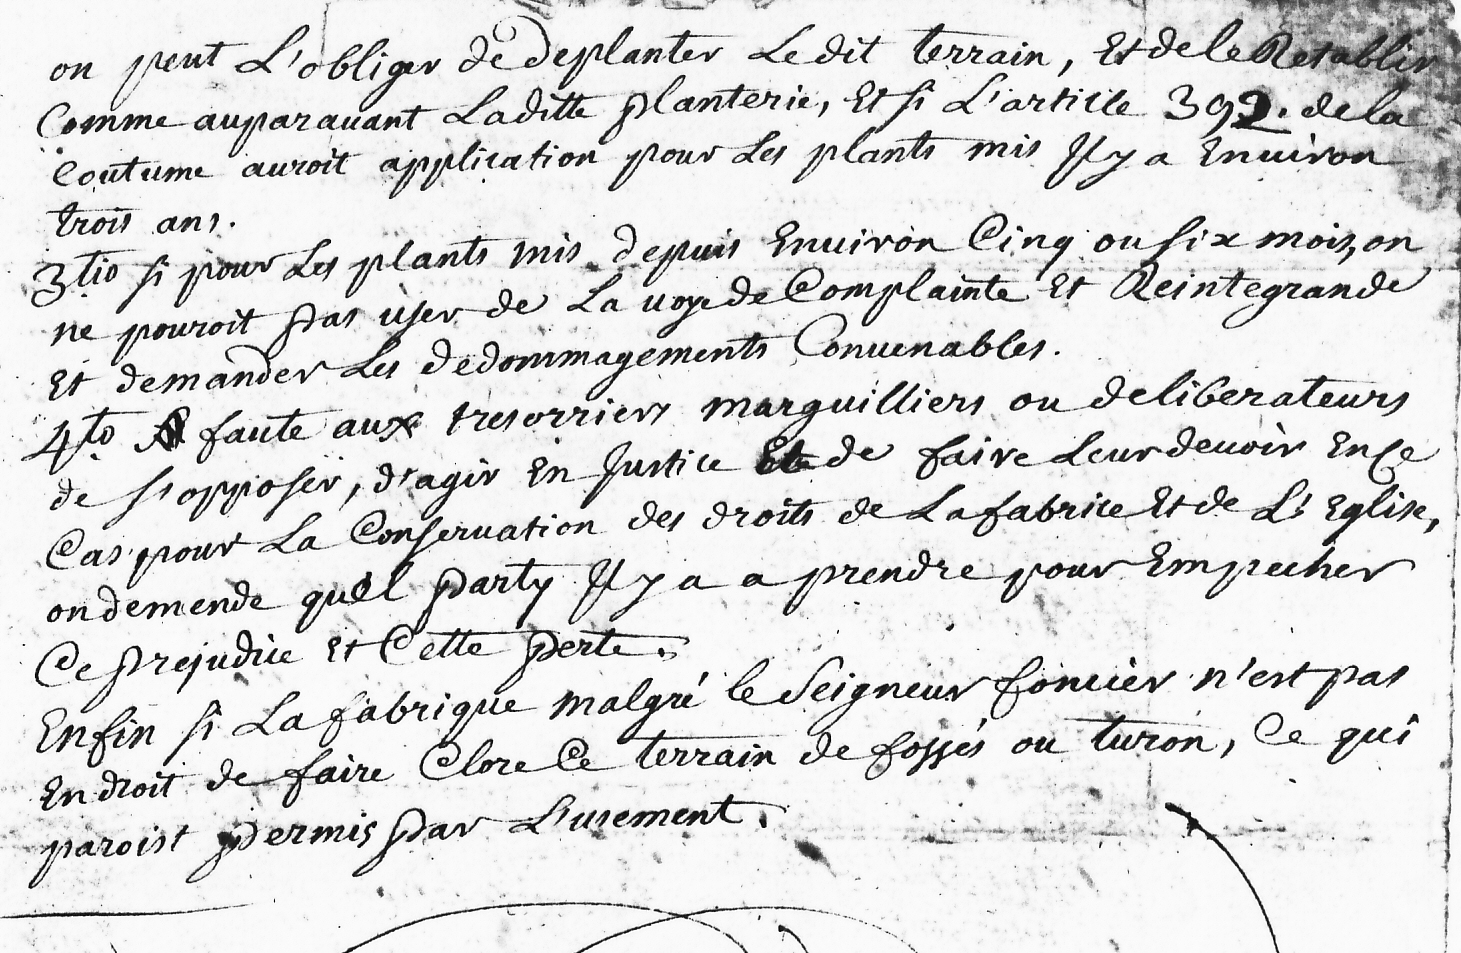 on peut L'obliger de deplanter Ledit terrain, Et de le Retablir
Comme auparauant Laditte planterie, Et si L'article 392. de la
Coutume auroit application pour Les plants mis Il y a Enuiron
trois ans.
3tio si pour Les plants mis depuis Enuiron Cinq ou six mois, on
ne pouroit pas user de La voye de Complainte Et Reintegrande
Et demander Les dedommagements Conuenables.
4to A faute aux tresorriers marguilliers ou deliberateurs
de s'opposer, d'agir En Justice Et de faire Leur devoir En Ce
Cas pour La Conseruation des droits de La fabrice Et de L'Eglise,
on demende quel party Il y a a prendre pour Empecher
Ce prejudice Et Cette perte.
Enfin si La fabrique malgré le Seigneur foncier n'est pas
En droit de faire Clore Ce terrain de fossés ou turon, Ce qui
paroist permis par L'usement.